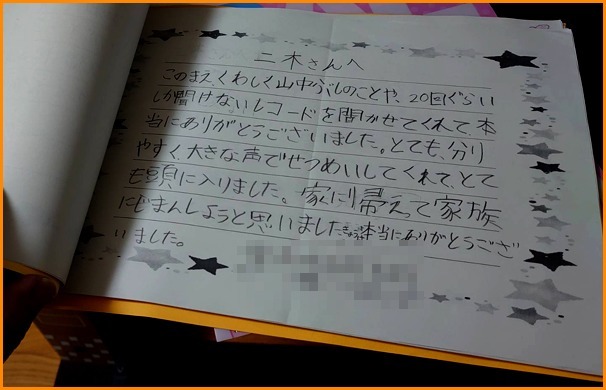 二木さんへ
このまえくわしく山中ぶしのことや、20回ぐらい
しか聞けないレコードを聞かせてくれて、本
当にありがとうございました。とても、分り
やすく、大きな声でせつめいしてくれて、とて
も頭に入りました。家に帰えて家族
にじまんしようと思いました。本当にありがとうござ
いました。